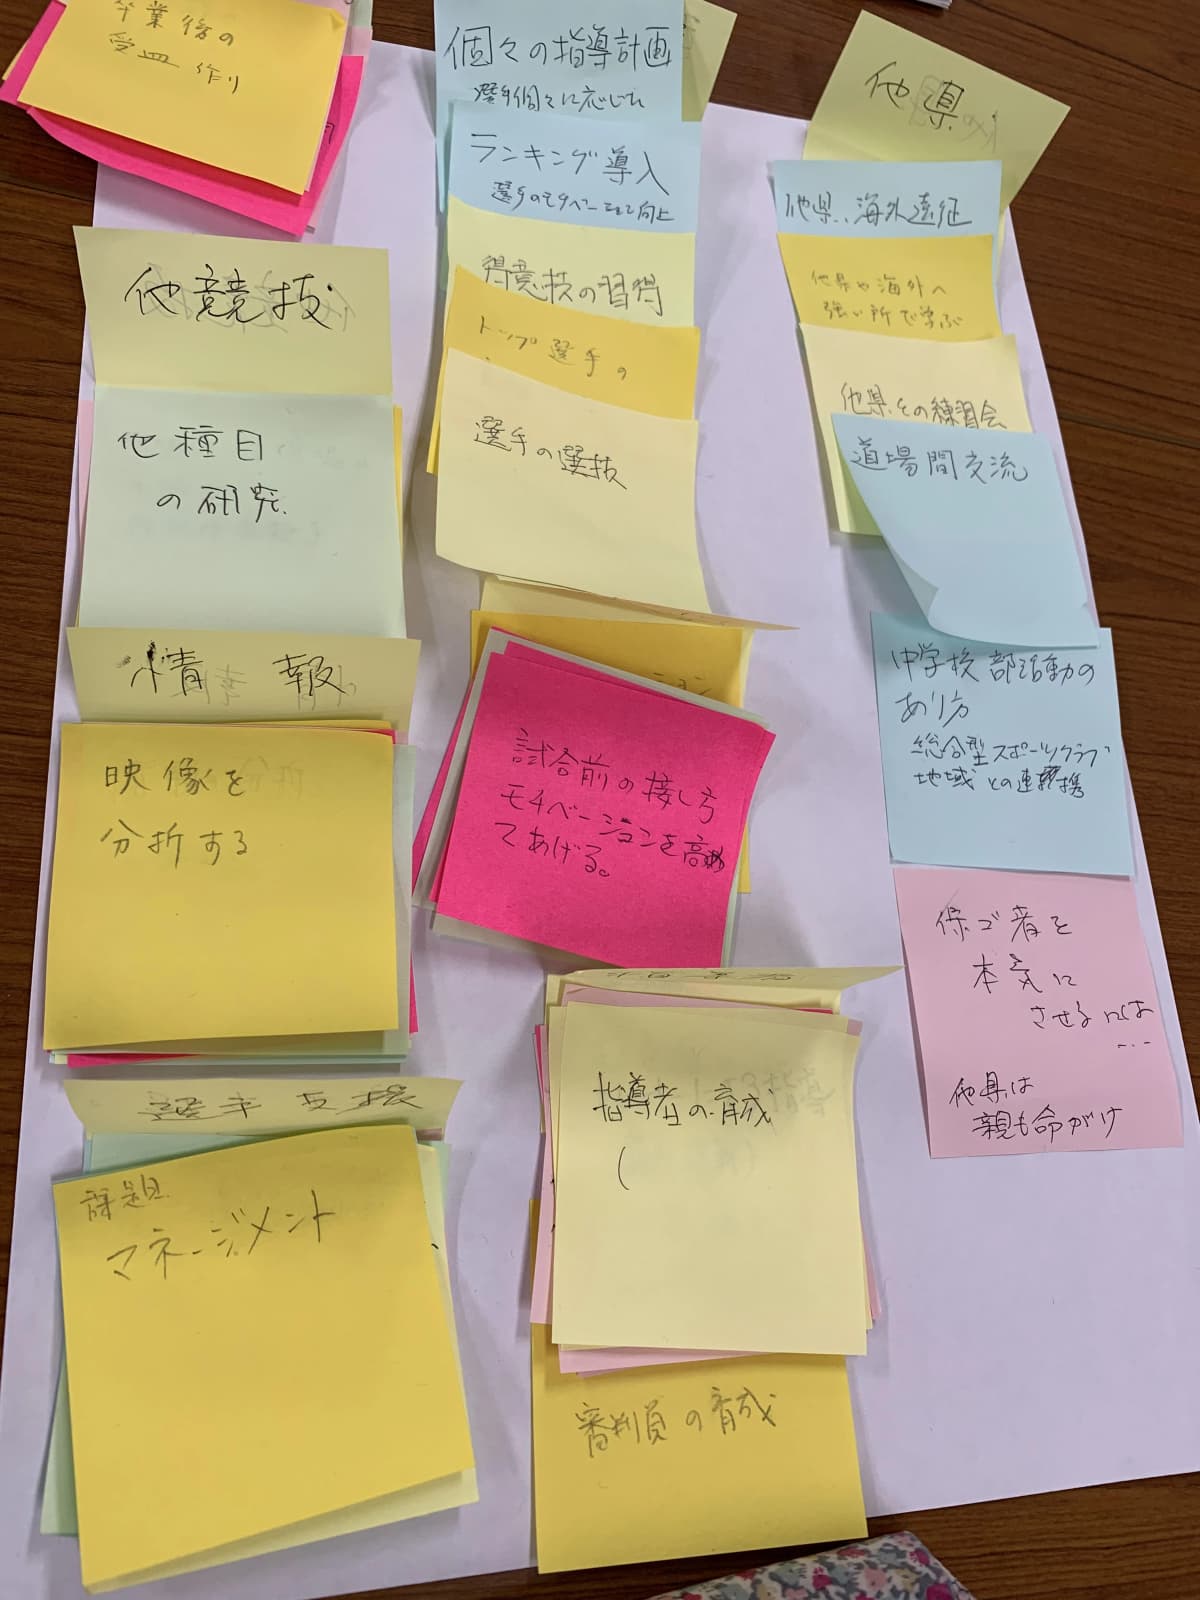 卒業後の
受皿作り
他競技
他種目
の研究
情報
映像を
分析する
選手支援
課題
マネージメント
個々の指導計画
選手個々に応じた
ランキング導入
選手のモチベーション向上
得意技の習得
トップ選手の
選手の選抜
ション
試合前の接し方
モチベーションを高め
てあげる。
指導者の育成
(
審判員の育成
他県
他県、海外遠征
他県や海外へ
強い所で学ぶ
他県との練習会
道場間交流
中学校部活動の
あり方
総合型スポーツクラブ
地域との連携
保ゴ者を
本気に
させるには
...
他県は
親も命がけ